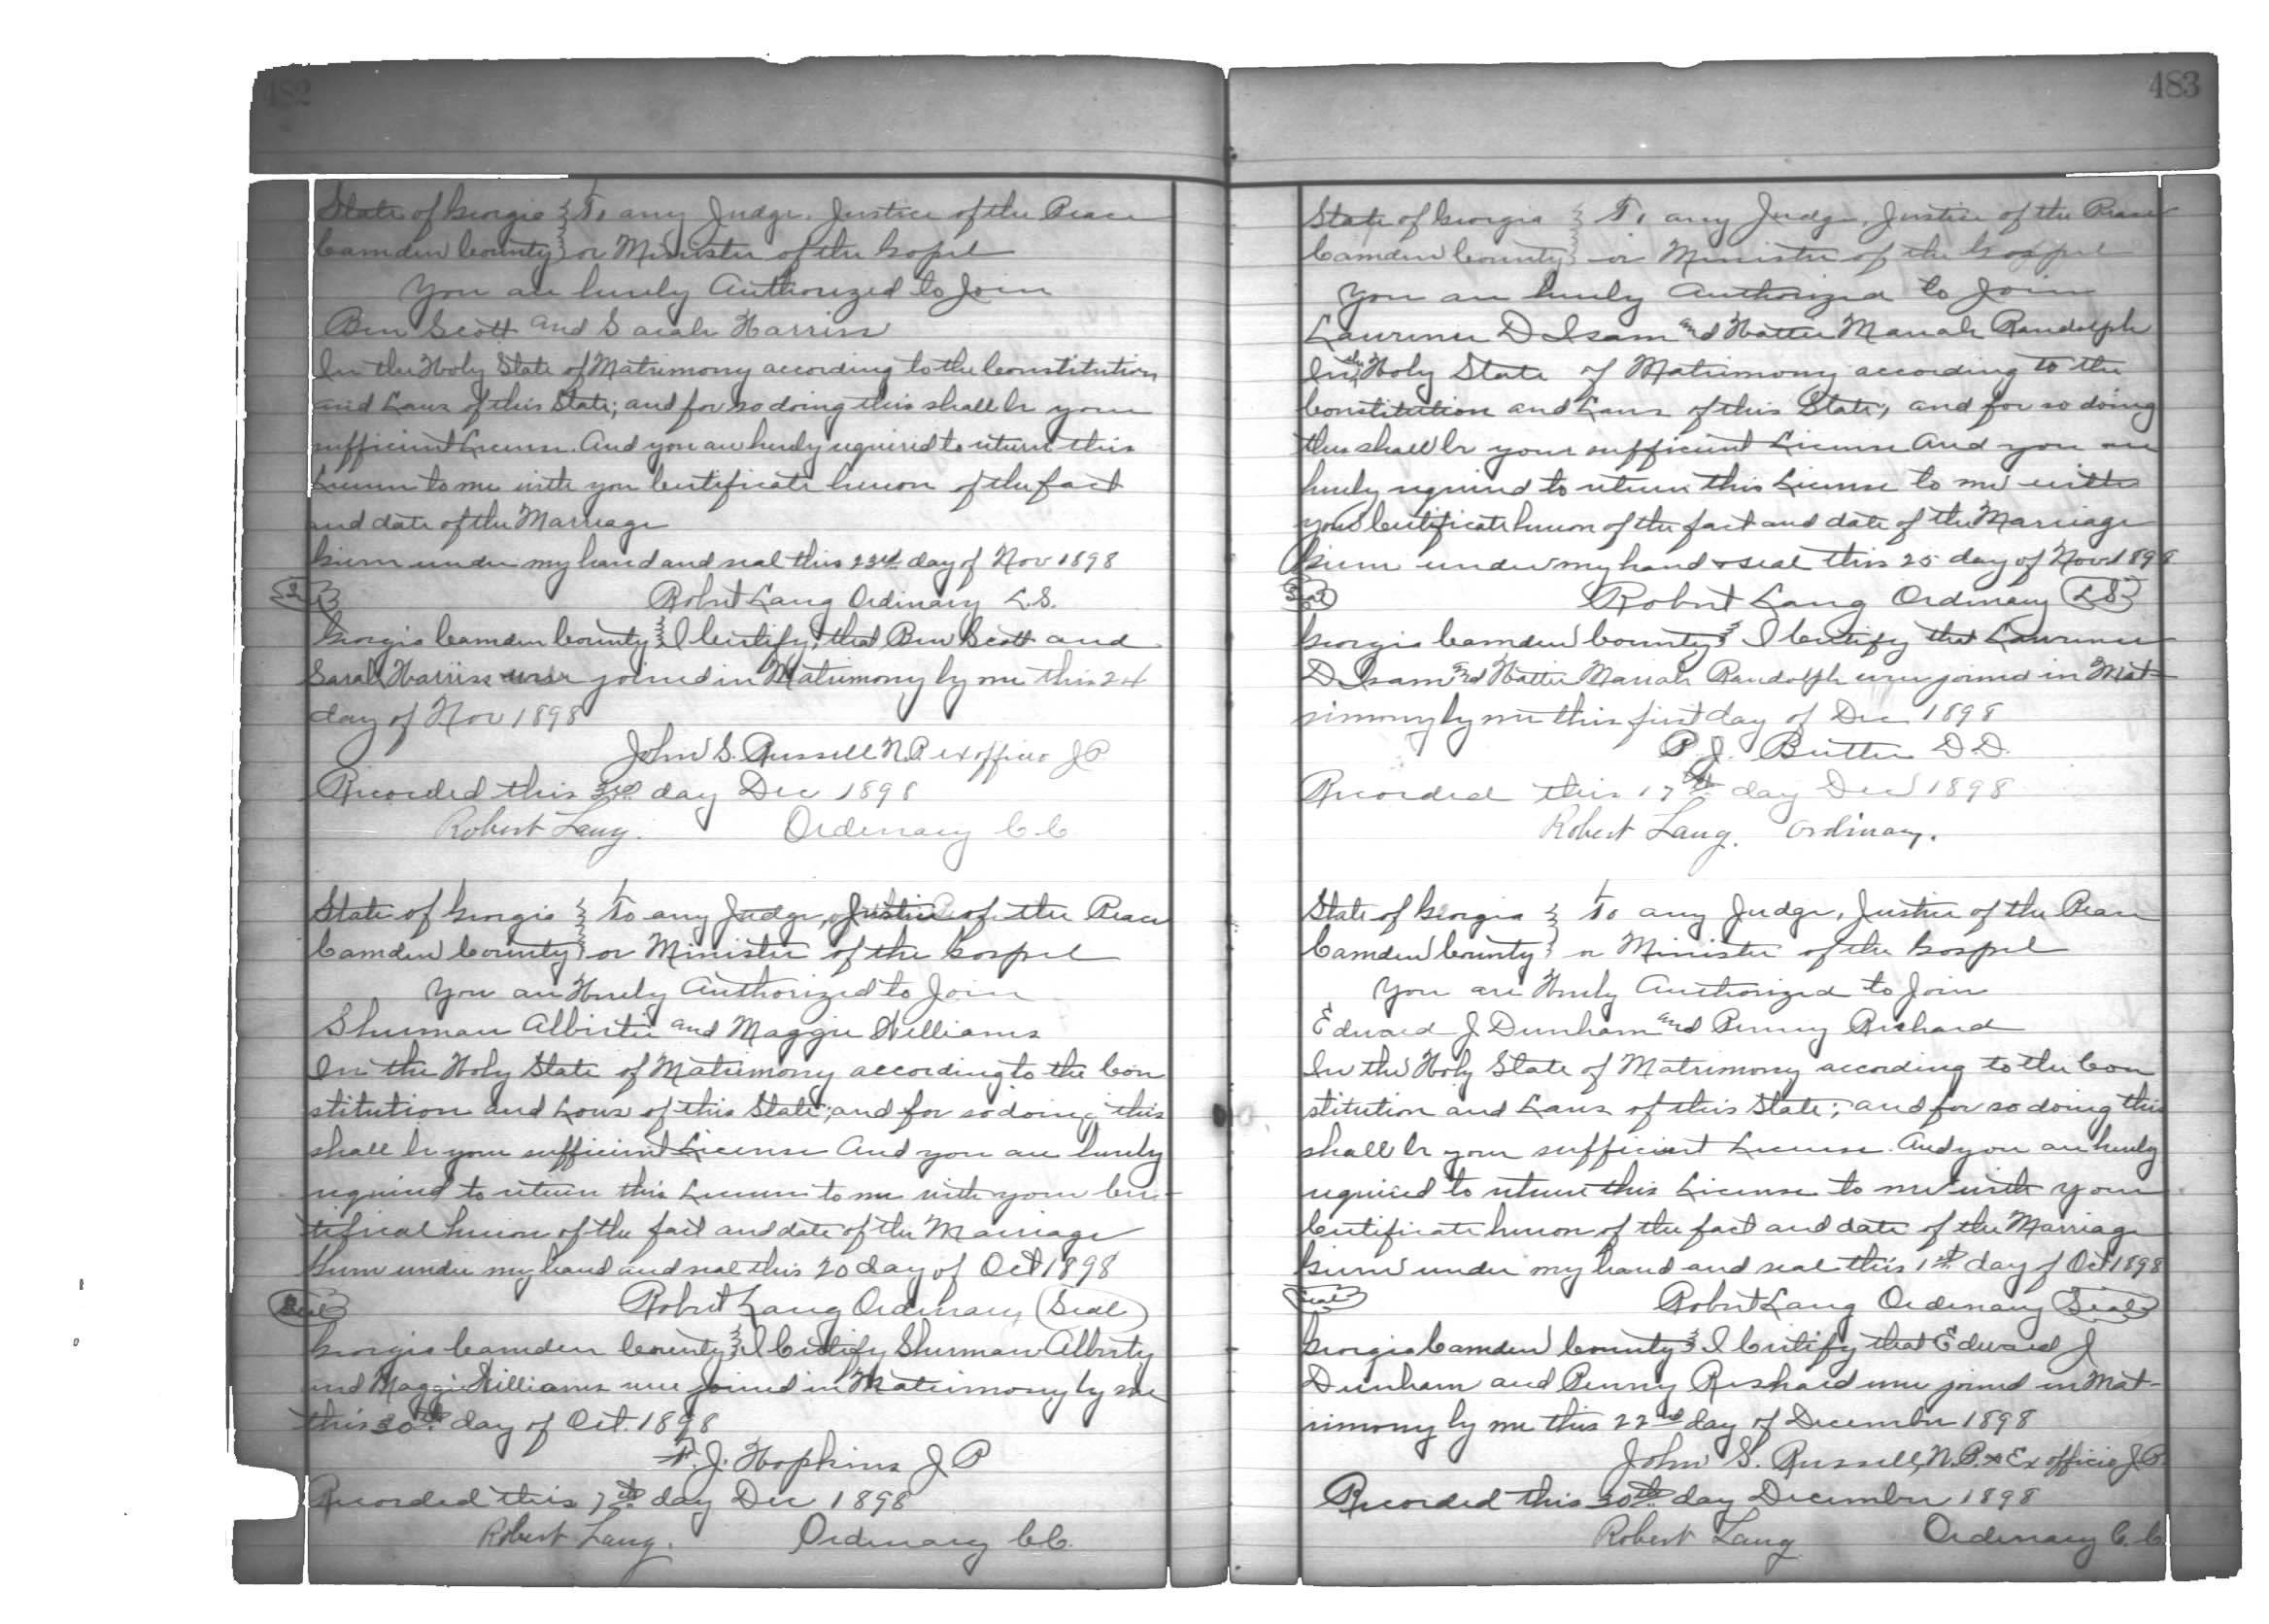 482
State of Georgia } To any Judge, Justice of the Peace
Camden County } or Minister of the Gospel
You are hereby Authorized to Join
Ben Scott and Sarah Harriss
In the Holy State of Matrimony according to the Constitution
and Laws of this State; and for so doing this shall be your
sufficient License. And you are hereby required to return this
License to me with you Certificate hereon of the fact
and date of the Marriage
Given under my hand and seal this 23rd day of Nov 1898
Robert Lang Ordinary L.S.
Georgia Camden County } I Certify that Ben Scott and
Sarah Harriss were joined in Matrimony by me this 24
day of Nov 1898
John S. Russell N.P. ex officio J P
Recorded this 3rd day Dec 1898
Robert Lang. Ordinary C C
State of Georgia } To any Judge, Justice of the Peace
Camden County } or Minister of the Gospel
You are Hereby Authorized to Join
Shurman Albirtie and Maggie Williams
In the Holy State of Matrimony according to the Con
stitution and Laws of this State; and for so doing this
shall be your sufficient License And you are hereby
required to return this License to me with your Cer-
tifical hereon of the fact and date of the Marriage
Given under my hand and seal this 20 day of Oct 1898
Seal Robert Lang Ordinary (Seal)
Georgia Camden County } I Certify Shurman Alberty
and Maggie Williams were joined in Matrimony by me
this 30th day of Oct. 1898
F. J. Hopkins J P
Recorded this 7th day Dec 1898
Robert Lang. Ordinary C.C.
483
State of Georgia } To any Judge, Justice of the Peace
Camden County } or Minister of the Gospel
You are hereby Authorized to Join
Lawrence D Isam and Hattie Mariah Randolph
In the Holy State of Matrimony according to the
Constitution and Laws of this State, and for so doing
this shall be your sufficient License And you are
hereby required to return this License to me with
your Certificate hereon of the fact and date of the Marriage
Given under my hand & seal this 25 day of Nov 1898
Seal Robert Lang Ordinary (LS)
Georgia Camden County } I Certify that Lawrence
D Isam and Hattie Mariah Randolph were joined in Mat-
rimony by me this first day of Dec 1898
P. J. Butler D.D.
Recorded this 17th day Dec 1898
Robert Lang. Ordinary.
State of Georgia } To any Judge, Justice of the Peace
Camden County } or Minister of the Gospel
You are Hereby Authorized to Join
Edward J Dunham and Penny Richard
In the Holy State of Matrimony according to the Con
stitution and Laws of this State; and for so doing this
shall be your sufficient License. And you are hereby
required to return this License to me with your
Certificate hereon of the fact and date of the Marriage
Given under my hand and seal this 1st day of Oct 1898
Seal Robert Lang Ordinary (Seal)
Georgia Camden County } I Certify that Edward J
Dunham and Penny Rishard were joined in Mat-
rimony by me this 22nd day of December 1898
John S. Russell, N.P. & Ex officio J.P.
Recorded this 30th day December 1898
Robert Lang Ordinary C.C.